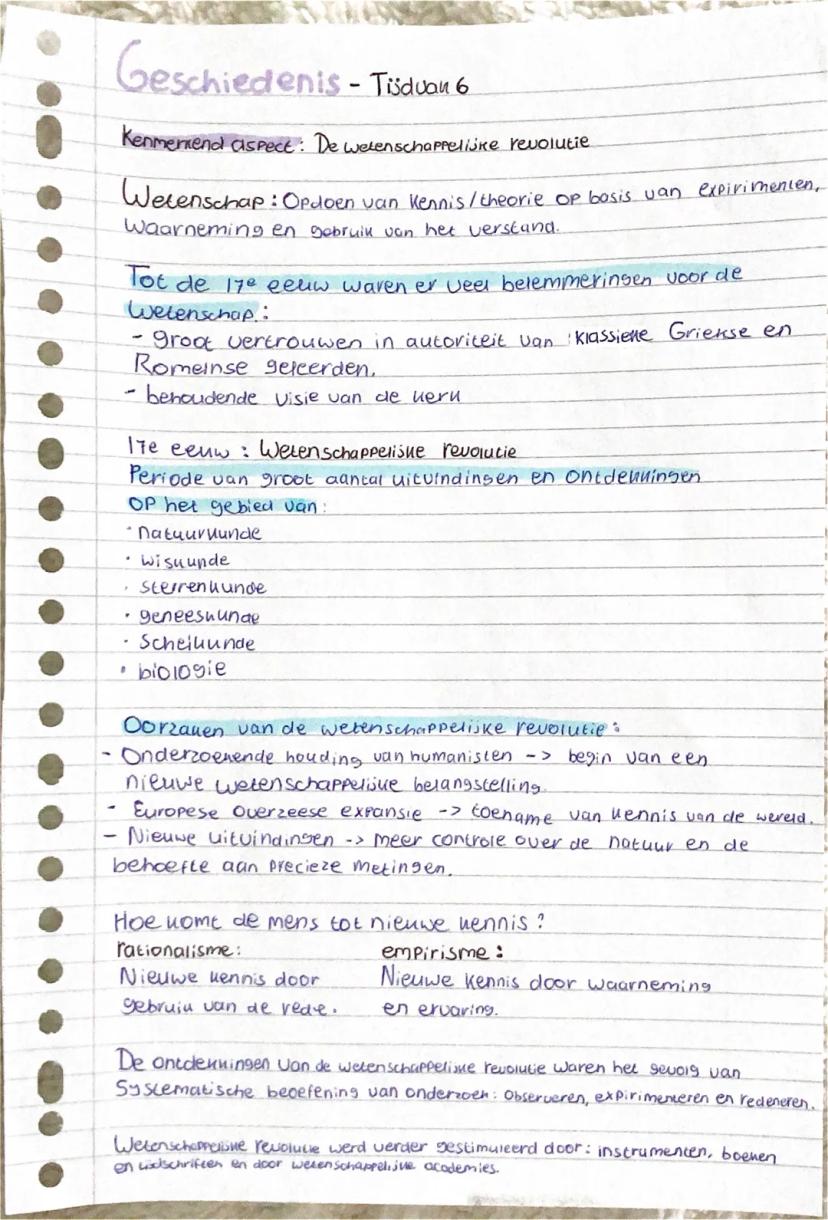 Geschiedenis - Tijdvak 6
Kenmerkend aspect: De wetenschappelijke revolutie
Wetenschap: Opdoen van kennis/theorie op basis van expirimenten,
waarneming en gebruik van het verstand.
Tot de 17e eeuw waren er veel belemmeringen voor de
wetenschap:
- groot vertrouwen in autoriteit van klassieke Griekse en
Romeinse geleerden.
- behoudende visie van de kerk
17e eeuw: Wetenschappelijke revolutie
Periode van groot aantal uitvindingen en ontdekkingen
op het gebied van:
· natuurkunde
· wiskunde
· sterrenkunde
· geneeskunde
· Scheikunde
· biologie
Oorzaken van de wetenschappelijke revolutie:
- Onderzoekende houding van humanisten -> begin van een
nieuwe wetenschappelijke belangstelling.
- Europese overzeese expansie -> toename van kennis van de wereld.
- Nieuwe uitvindingen -> meer controle over de natuur en de
behoefte aan precieze metingen.
Hoe komt de mens tot nieuwe kennis?
rationalisme: empirisme:
Nieuwe kennis door Nieuwe kennis door waarneming
gebruik van de rede. en ervaring.
De ontdekkingen van de wetenschappelijke revolutie waren het gevolg van
Systematische beoefening van onderzoek: Observeren, expirimenteren en redeneren.
Wetenschappelijke revolutie werd verder gestimuleerd door: instrumenten, boeken
en tijdschriften en door wetenschappelijke academies.